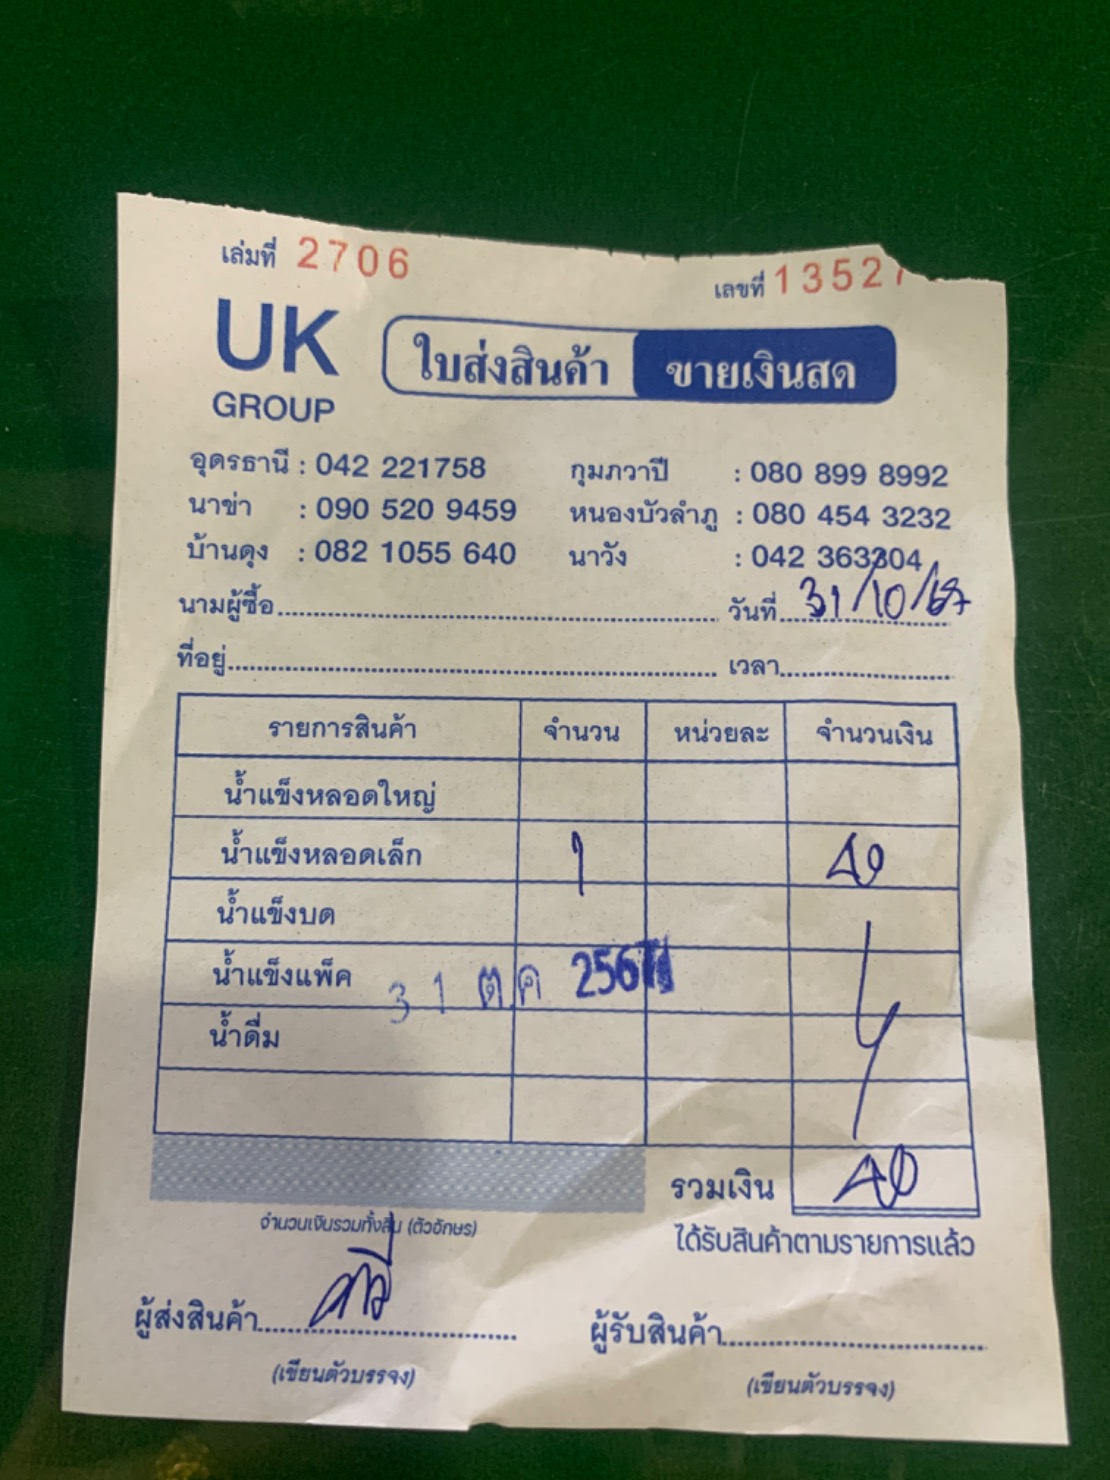 เล่มที่ 2706
เลขที่ 13527
UK
GROUP
ใบส่งสินค้า ขายเงินสด
อุดรธานี : 042 221758 กุมภวาปี : 080 899 8992
นาข่า : 090 520 9459 หนองบัวลำภู : 080 454 3232
บ้านดุง : 082 1055 640 นาวัง : 042 363304
นามผู้ซื้อ วันที่ 31/10/67
ที่อยู่ เวลา
รายการสินค้า จำนวน หน่วยละ จำนวนเงิน
น้ำแข็งหลอดใหญ่
น้ำแข็งหลอดเล็ก 1 40
น้ำแข็งบด
น้ำแข็งแพ็ค
31 ต.ค 2567
น้ำดื่ม
รวมเงิน 40
จำนวนเงินรวมทั้งสิ้น (ตัวอักษร)
ได้รับสินค้าตามรายการแล้ว
ผู้ส่งสินค้า ผู้รับสินค้า
(เขียนตัวบรรจง) (เขียนตัวบรรจง)